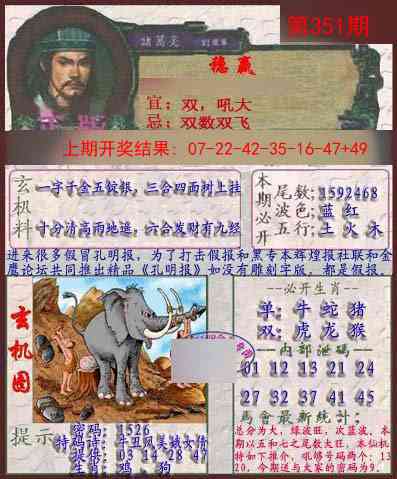 第351期
諸葛亮
稳赢
宜：双，吼大
忌：双数双飞
上期开奖结果：07-22-42-35-16-47+49
玄机料
一字千金五锭银，三合四面树上挂
十分清高雨地遮，六合发财有九经
本期必开
尾数;1592468
波色;蓝 红
五行;土 火 木
进来很多假冒孔明报，为了打击假报和黑专本辉煌报社联和金
鹰论坛共同推出精品《孔明报》如没有雕刻字版，都是假报。
玄机图
必开生肖
单:牛 蛇 猪
双:虎 龙 猴
内部泄码
01 12 13 21 24
27 32 37 41 45
馬會最新統計:
总分为大，绿波旺，次蓝波。本
期以五和七之尾数大旺，本仙机
特如下推介，吼够号码两个：13
20，今期送与大家的密码为9。
提示
密码:1526
特码诗:牛丑凤美贼女债
提供:03 14 28 47
生肖:鸡，狗